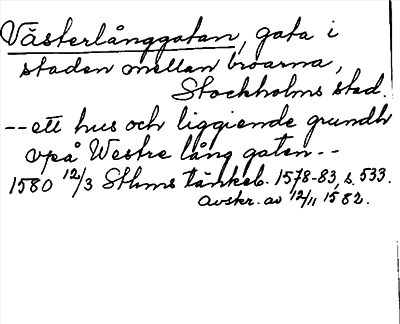 Västerlånggatan, gata i
staden mellan broarna,
Stockholms stad.
-- ett hus och liggiende grundh
vpå Westre lång gaten --
1580 12/3 Sthms tänkeb. 1578-83, s. 533.
Avskr. av 12/11 1582.